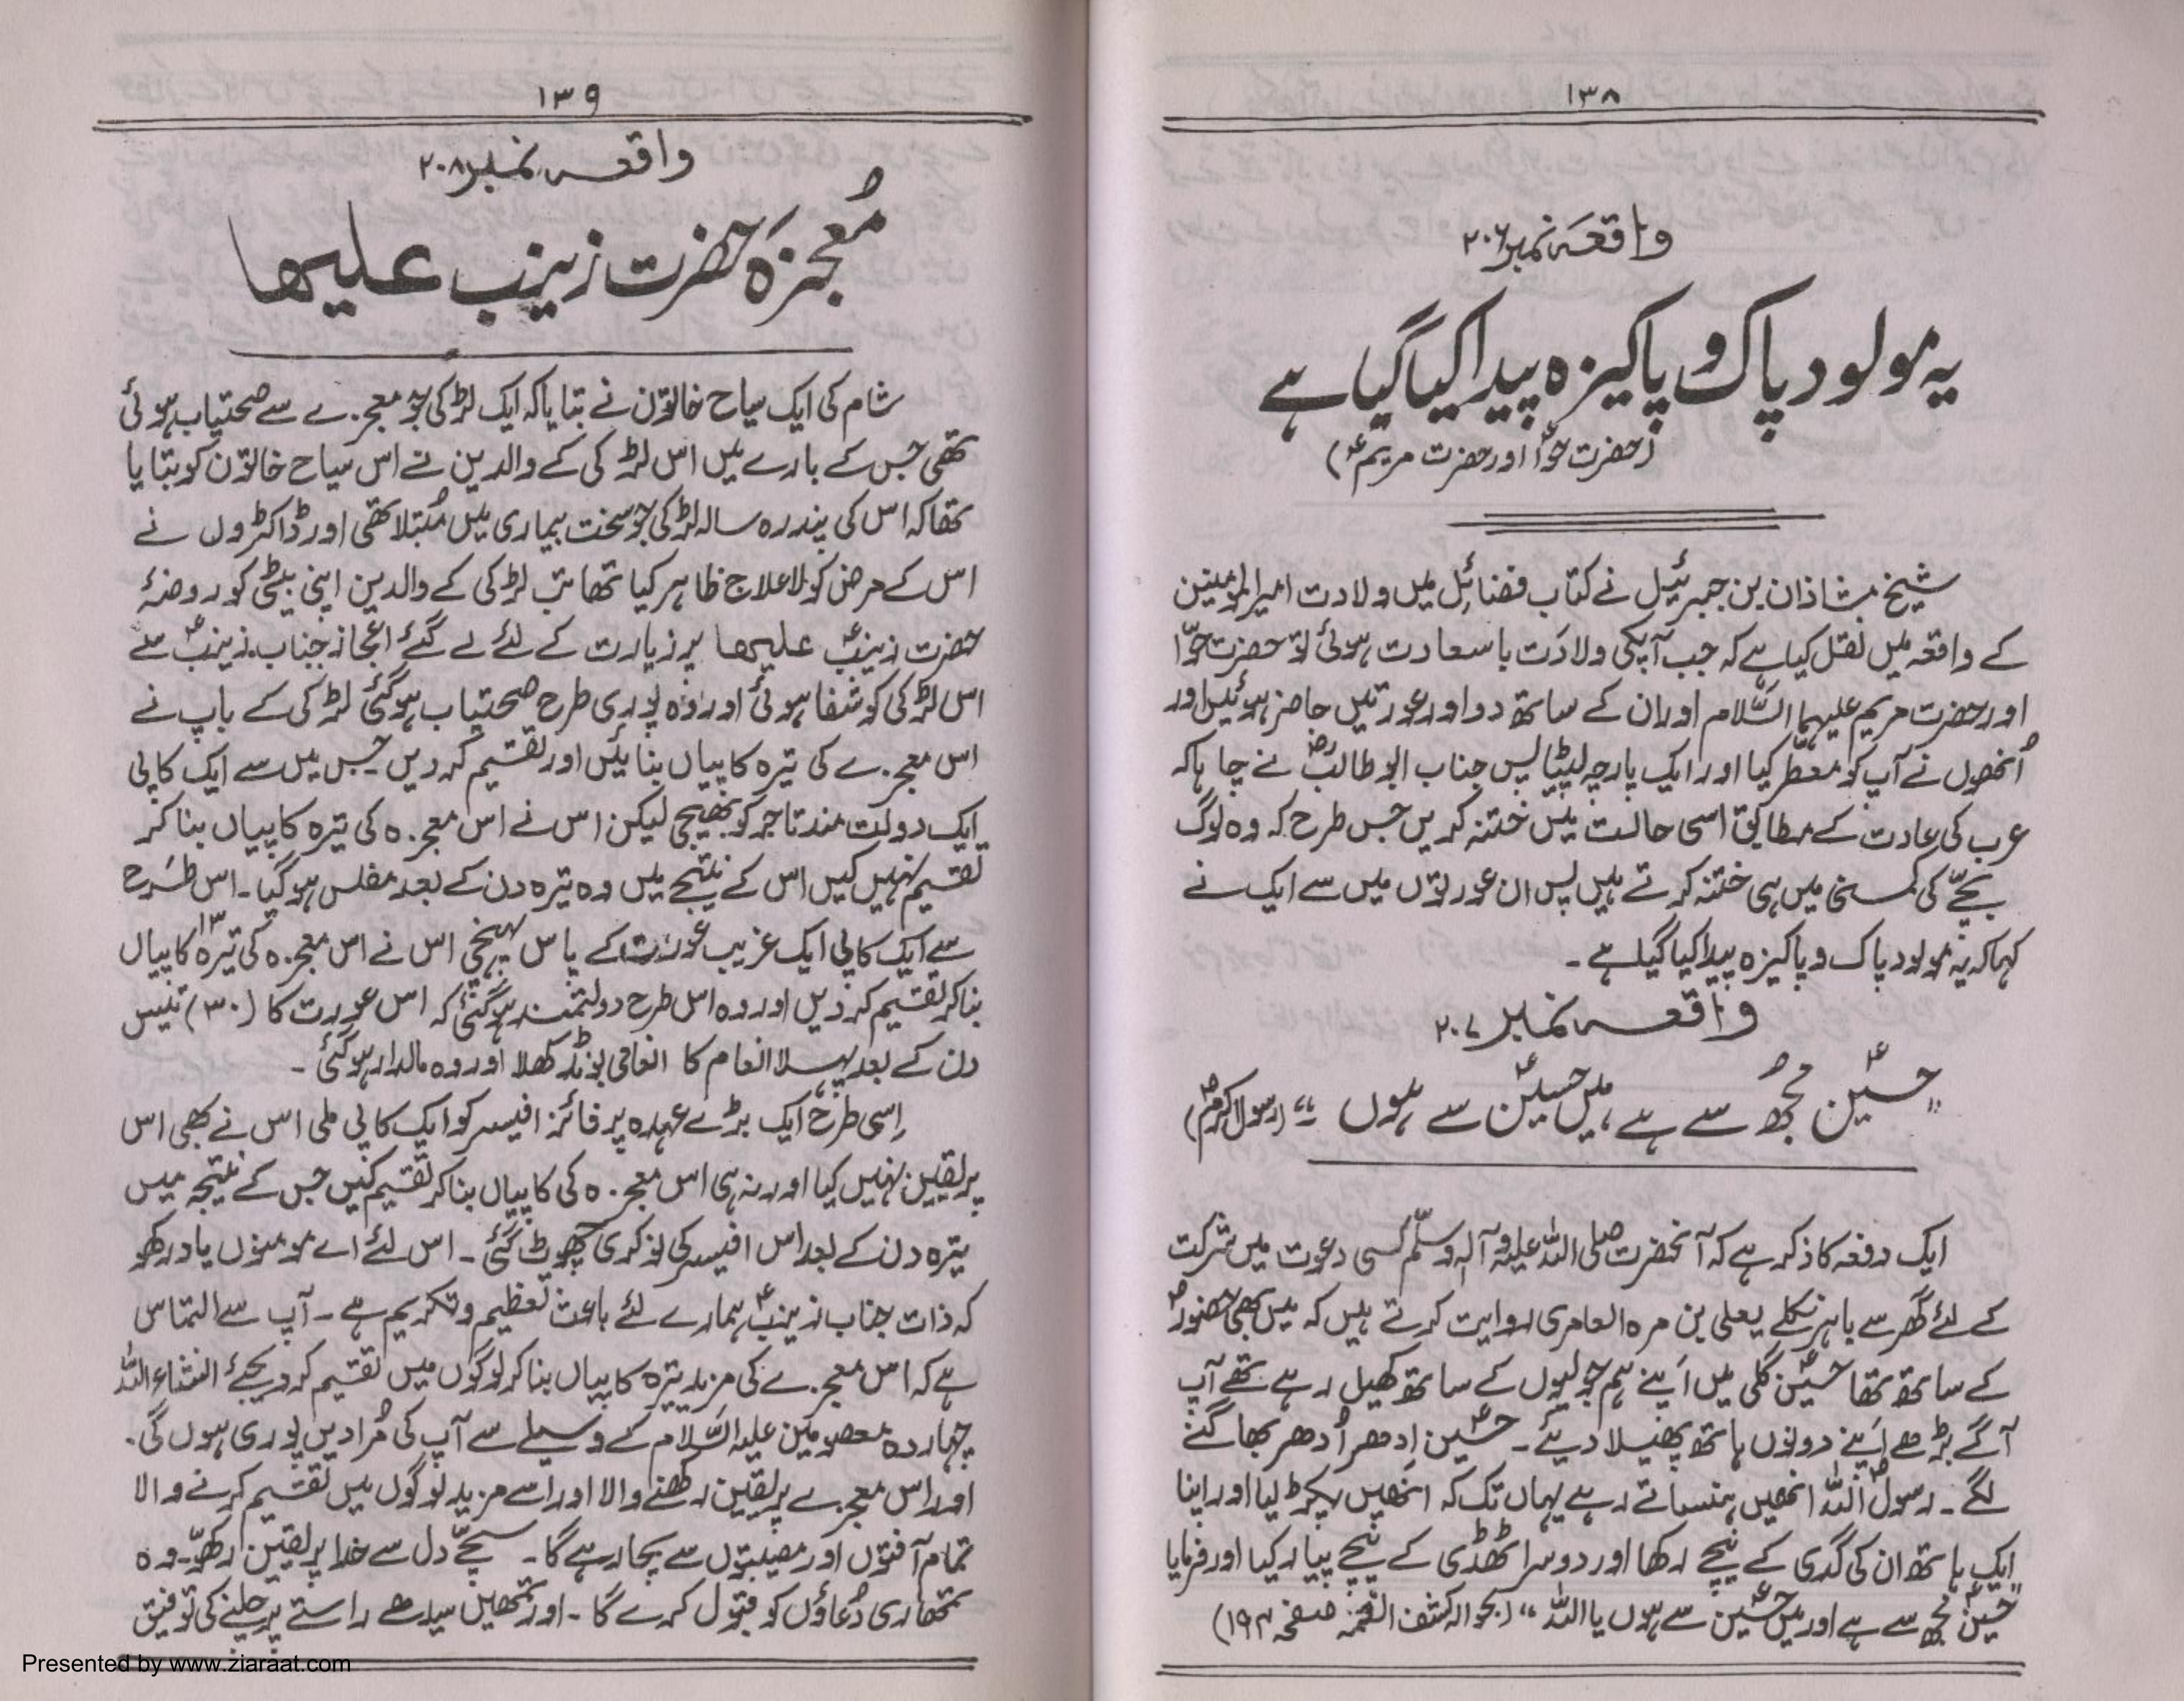 ۱۳۸
واقعہ نمبر ۲۰۶
یہ مولود پاک و پاکیزہ پیدا کیا گیا ہے
(حضرت حوّاؑ اور حضرت مریمؑ)
شیخ شاذان بن جبرئیل نے کتاب فضائل میں ولادت امیرالمومنین
کے واقعہ میں نقل کیا ہے کہ جب آپکی ولادت باسعادت ہوئی تو حضرت حوّا
اور حضرت مریم علیہما السّلام اور ان کے ساتھ دو اور عورتیں حاضر ہوئیں اور
اُنھوں نے آپ کو معطّر کیا اور ایک پارچہ لپیٹا پس جناب ابو طالبؓ نے چاہا کہ
عرب کی عادت کے مطابق اسی حالت میں ختنہ کریں جس طرح کہ وہ لوگ
بچّے کی کمسنی میں ہی ختنہ کرتے ہیں پس ان عورتوں میں سے ایک نے
کہا کہ یہ مولود پاک و پاکیزہ پیدا کیا گیا ہے۔
واقعہ نمبر ۲۰۷
"حسینؑ مجھُ سے ہے، میں حسینؑ سے ہوں" (رسول اکرمؐ)
ایک دفعہ کا ذکر ہے کہ آنحضرت صلی اللہ علیہ وآلہ وسلّم کسی دعوت میں شرکت
کے لئے گھر سے باہر نکلے یعلی بن مرہ العامری روایت کرتے ہیں کہ میں بھی حضورؐ
کے ساتھ تھا حسینؑ گلی میں اَپنے ہم جولیوں کے ساتھ کھیل رہے تھے آپ
آگے بڑھے اَپنے دونوں ہاتھ پھیلا دیئے۔ حسینؑ اِدھر اُدھر بھاگنے
لگے۔ رسولؐ اللہ انھیں ہنساتے رہے یہاں تک کہ انھیں پکڑ لیا اور اپنا
ایک ہاتھ ان کی گدی کے نیچے رکھا اور دوسرا ٹھڈی کے نیچے پیار کیا اور فرمایا
"حسینؑ مجھ سے ہے اور میں حسینؑ سے ہوں یا اللہ" (بحوالہ کشف الغمہ صفحہ ۱۹۴)
۱۳۹
واقعہ نمبر ۲۰۸
مُعجزہ حضرت زینب علیھا
شام کی ایک سیاح خاتون نے بتایا کہ ایک لڑکی جو معجزے سے صحتیاب ہوئی
تھی جس کے بارے میں اس لڑکی کے والدین نے اس سیاح خاتون کو بتایا
تھا کہ اس کی پندرہ سالہ لڑکی جو سخت بیماری میں مُبتلا تھی اور ڈاکٹروں نے
اس کے مرض کو لاعلاج ظاہر کیا تھا تب لڑکی کے والدین اپنی بیٹی کو روضۂ
حضرت زینبؑ علیھا پر زیارت کے لئے لے گئے اعجاز جناب زینبؑ سے
اس لڑکی کو شفا ہوئی اور وہ پوری طرح صحتیاب ہوگئی لڑکی کے باپ نے
اس معجزے کی تیرہ کاپیاں بنائیں اور تقسیم کر دیں جس میں سے ایک کاپی
ایک دولت مند تاجر کو بھیجی لیکن اس نے اس معجزہ کی تیرہ کاپیاں بنا کر
تقسیم نہیں کیں اس کے نتیجے میں وہ تیرہ دن کے بعد مفلس ہو گیا۔ اس طرح
سے ایک کاپی ایک غریب عورت کے پاس پہنچی اس نے اس معجزہ کی تیرہ ۱۳ کاپیاں
بنا کر تقسیم کر دیں اور وہ اس طرح دولتمند ہو گئی کہ اس عورت کا (۳۰) تیس
دن کے بعد پہلا انعام کا انعامی بونڈ کھلا اور وہ مالدار ہو گئی۔
اِسی طرح ایک بڑے عہدہ پر فائز افیسر کو ایک کاپی ملی اس نے بھی اس
پر یقین نہیں کیا اور نہ ہی اس معجزہ کی کاپیاں بنا کر تقسیم کیں جس کے نتیجہ میں
تیرہ دن کے بعد اس افیسر کی نوکری چھوٹ گئی۔ اس لئے اے مومنوں یاد رکھو
کہ ذات جناب زینبؑ ہمارے لئے باعث تعظیم و تکریم ہے۔ آپ سے التماس
ہے کہ اس معجزے کی مزید تیرہ کاپیاں بنا کر لوگوں میں تقسیم کر دیجئے انشاء اللہ
چہاردہ معصومین علیہ السّلام کے وسیلے سے آپ کی مُرادیں پوری ہوں گی۔
اور اس معجزے پر یقین رکھنے والا اور اسے مزید لوگوں میں تقسیم کرنے والا
تمام آفتوں اور مصیبتوں سے بچا رہے گا۔ سچّے دل سے خدا پر یقین رکھو۔ وہ
تمھاری دُعاؤں کو قبول کرے گا۔ اور تمھیں سیدھے راستے پر چلنے کی توفیق
Presented by www.ziaraat.com